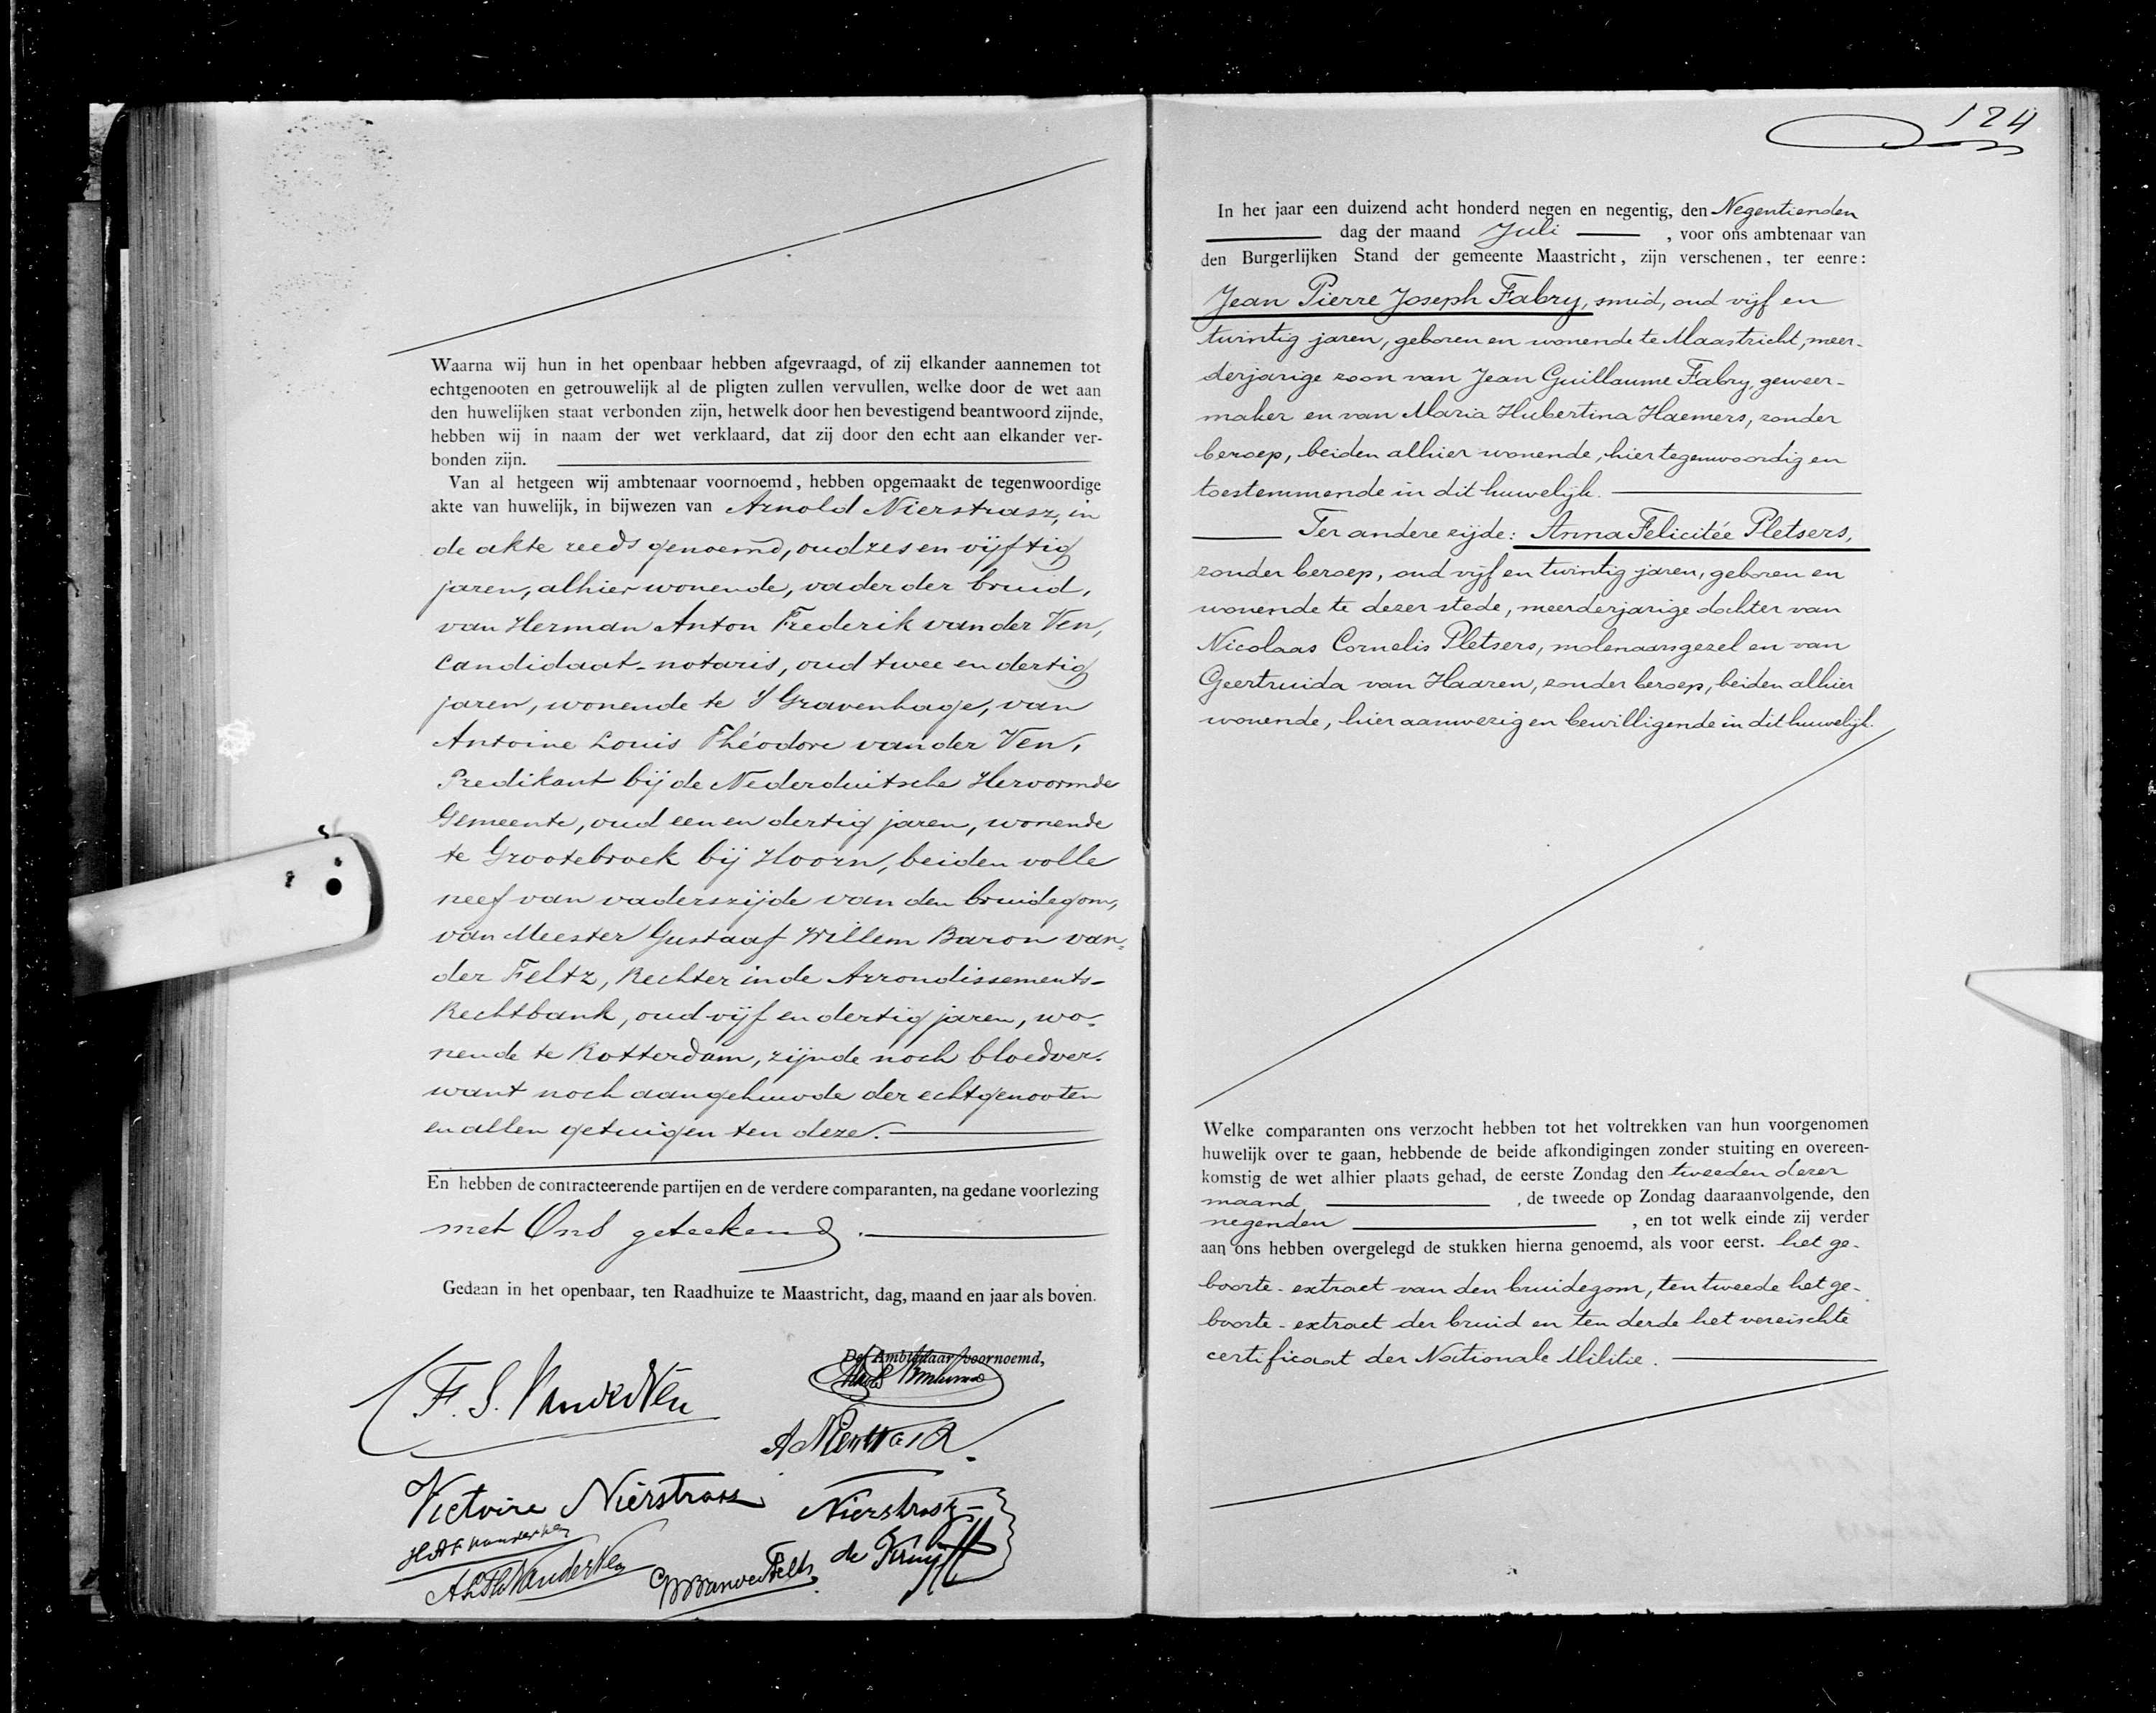 Waarna wij hun in het openbaar hebben afgevraagd, of zij elkander aannemen tot
echtgenooten en getrouwelijk al de pligten zullen vervullen, welke door de wet aan
den huwelijken staat verbonden zijn, hetwelk door hen bevestigend beantwoord zijnde,
hebben wij in naam der wet verklaard, dat zij door den echt aan elkander ver-
bonden zijn.
Van al hetgeen wij ambtenaar voornoemd, hebben opgemaakt de tegenwoordige
akte van huwelijk, in bijwezen van Arnold Nierstrasz, in
de akte reeds genoemd, oud zes en vijftig
jaren, alhier wonende, vader der bruid,
van Herman Anton Frederik van der Ven,
candidaat-notaris, oud twee en dertig
jaren, wonende te 's Gravenhage, van
Antoine Louis Théodore van der Ven,
Predikant bij de Nederduitsche Hervormde
Gemeente, oud een en dertig jaren, wonende
te Grootebroek bij Hoorn, beiden volle
neef van vaderszijde van den bruidegom,
van Meester Gustaaf Willem Baron van-
der Feltz, Rechter in de Arrondissements-
Rechtbank, oud vijf en dertig jaren, wo-
nende te Rotterdam, zijnde noch bloedver-
want noch aangehuwde der echtgenooten
en allen getuigen ten deze.
En hebben de contracteerende partijen en de verdere comparanten, na gedane voorlezing
met Ons geteekend.
Gedaan in het openbaar, ten Raadhuize te Maastricht, dag, maand en jaar als boven.
De Ambtenaar voornoemd,
F. S. Van der Ven
A Nierstrasz
Victoire Nierstrasz
Nierstrasz-
de Kruijff
HAF van der Ven
A L Th Van der Ven
GW Van der Feltz
124
In het jaar een duizend acht honderd negen en negentig, den Negentienden
dag der maand Juli, voor ons ambtenaar van
den Burgerlijken Stand der gemeente Maastricht, zijn verschenen, ter eenre:
Jean Pierre Joseph Fabry, smid, oud vijf en
twintig jaren, geboren en wonende te Maastricht, meer-
derjarige zoon van Jean Guillaume Fabry, geweer-
maker en van Maria Hubertina Haemers, zonder
beroep, beiden alhier wonende, hier tegenwoordig en
toestemmende in dit huwelijk.
Ter andere zijde: Anna Felicitée Pletsers,
zonder beroep, oud vijf en twintig jaren, geboren en
wonende te dezer stede, meerderjarige dochter van
Nicolaas Cornelis Pletsers, molenaarsgezel en van
Geertruida van Haaren, zonder beroep, beiden alhier
wonende, hier aanwezig en bewilligende in dit huwelijk.
Welke comparanten ons verzocht hebben tot het voltrekken van hun voorgenomen
huwelijk over te gaan, hebbende de beide afkondigingen zonder stuiting en overeen-
komstig de wet alhier plaats gehad, de eerste Zondag den tweeden dezer
maand, de tweede op Zondag daaraanvolgende, den
negenden, en tot welk einde zij verder
aan ons hebben overgelegd de stukken hierna genoemd, als voor eerst. het ge-
boorte-extract van den bruidegom, ten tweede het ge-
boorte-extract der bruid en ten derde het vereischte
certificaat der Nationale Militie.